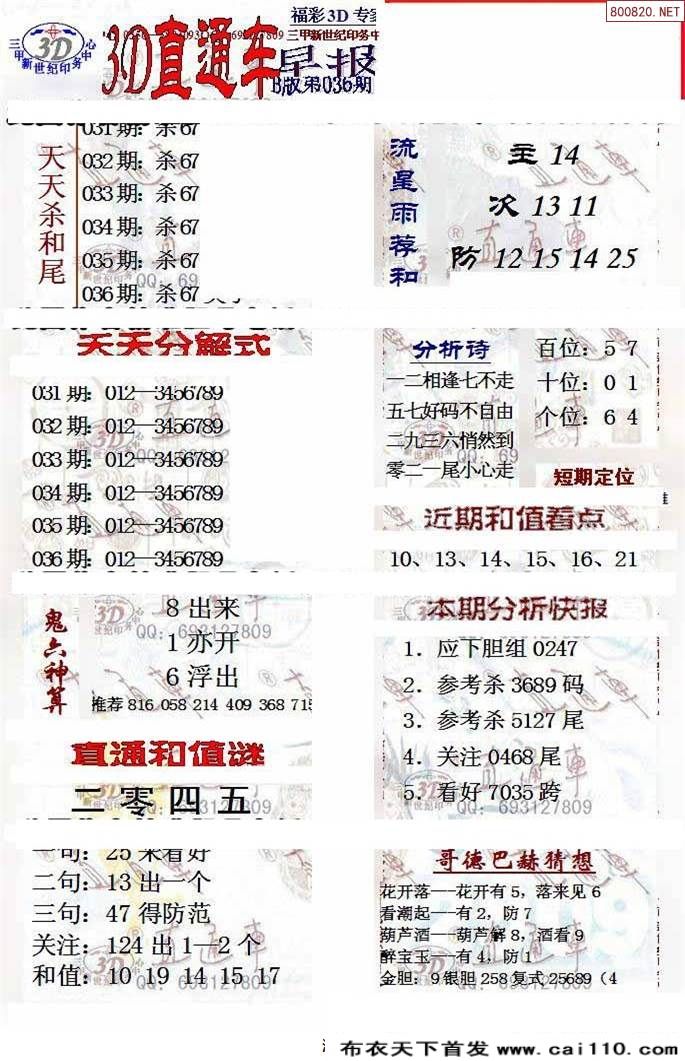 800820.NET
福彩3D 专家
三甲新世纪印务中心
3D
3D直通车
三甲新世纪印务中
早报
B版第036期
天天杀和尾
031期:杀67
032期:杀67
033期:杀67
034期:杀67
035期:杀67
036期:杀67
流星雨荐和
主 14
次 13 11
防 12 15 14 25
天天分解式
031期:012—3456789
032期:012—3456789
033期:012—3456789
034期:012—3456789
035期:012—3456789
036期:012—3456789
分析诗
一二相逢七不走
五七好码不自由
二九三六悄然到
零二一尾小心走
百位:5 7
十位:0 1
个位:6 4
短期定位
近期和值看点
10、13、14、15、16、21
鬼六神算
8 出来
1 亦开
6 浮出
推荐 816 058 214 409 368 715
QQ:693127809
本期分析快报
1.应下胆组 0247
2.参考杀 3689 码
3.参考杀 5127 尾
4.关注 0468 尾
5.看好 7035 跨
QQ:693127809
直通和值谜
二零四五
一句:25 来看好
二句:13 出一个
三句:47 得防范
关注:124 出 1—2 个
和值:10 19 14 15 17
QQ:693127809
哥德巴赫猜想
花开落——花开有 5,落来见 6
看潮起——有 2,防 7
葫芦酒——葫芦解 8,酒看 9
醉宝玉——有 4,防 1
金胆:9 银胆 258 复式 25689(4
布衣天下首发 www.cai110.com